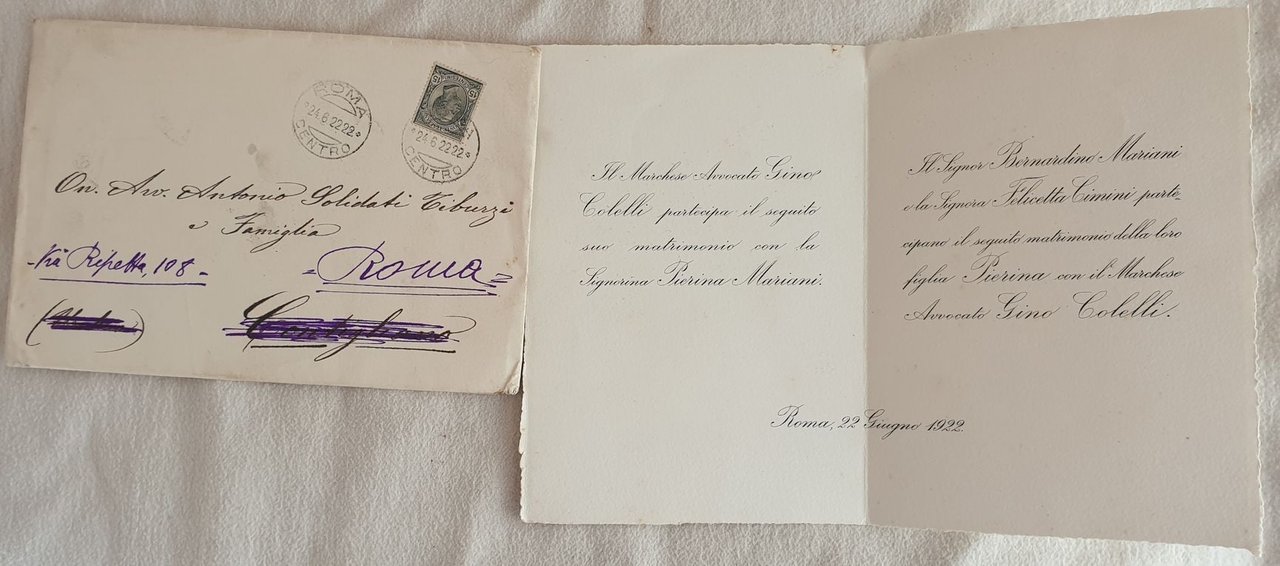 ROMA
*24.6.2222*
CENTRO
15
*24.6.2222*
CENTRO
On. Avv. Antonio Solidati Tiburzi
e Famiglia
Via Ripetta, 108
Roma
Il Marchese Avvocato Gino
Colelli partecipa il seguito
suo matrimonio con la
Signorina Pierina Mariani.
Il Signor Bernardino Mariani
e la Signora Felicetta Cimini parte-
cipano il seguito matrimonio della loro
figlia Pierina con il Marchese
Avvocato Gino Colelli.
Roma, 22 Giugno 1922.